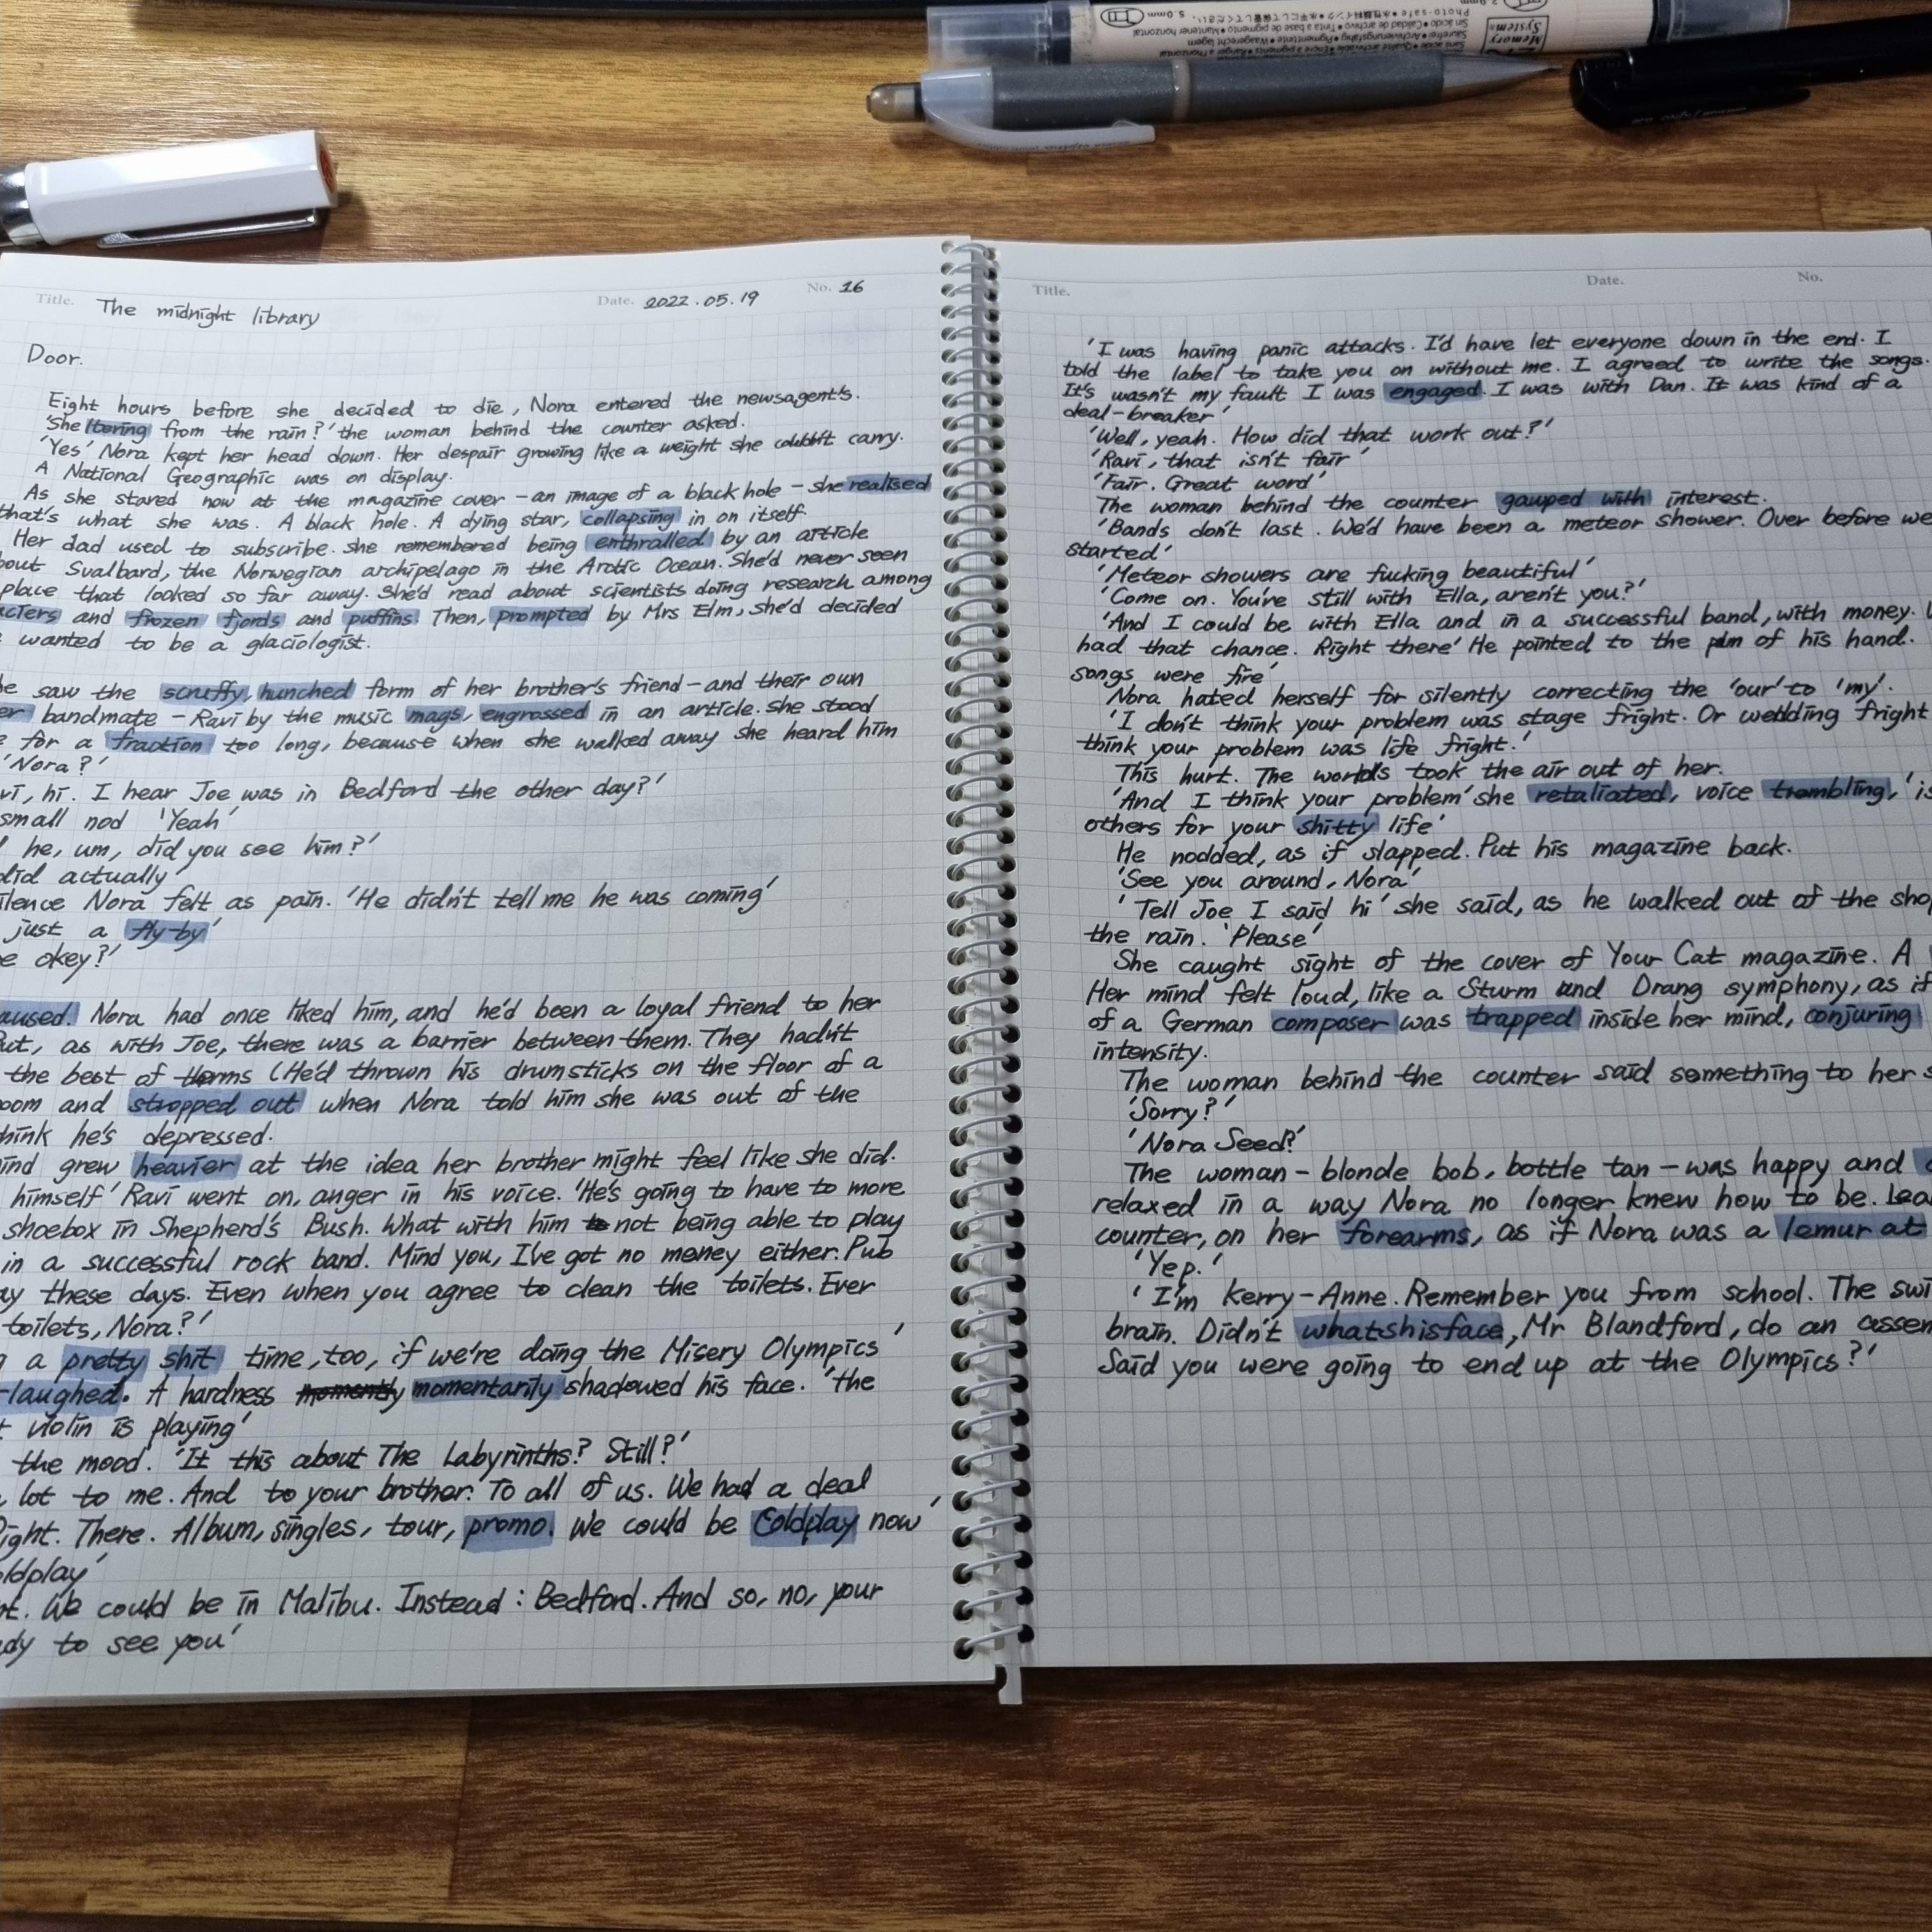 Photo-safe
Sans acide • Qualité archivable • Encre à pigments • Ranger à l'horizontal
Säurefrei • Archivierungsfähig • Pigmenttinte • Waagerecht lagern
Sin ácido • Calidad de archivo • Tinta a base de pigmento • Mantener horizontal
5.0mm
Memory
System
Title. The midnight library Date. 2022.05.19 No. 16
Door.
Eight hours before she decided to die, Nora entered the newsagent's.
'Sheltering from the rain?' the woman behind the counter asked.
'Yes' Nora kept her head down. Her despair growing like a weight she couldn't carry.
A National Geographic was on display.
As she stared now at the magazine cover - an image of a black hole - she realised
that's what she was. A black hole. A dying star, collapsing in on itself.
Her dad used to subscribe. She remembered being enthralled by an article
Svalbard, the Norwegian archipelago in the Arctic Ocean. She'd never seen
place that looked so far away. She'd read about scientists doing research among
and frozen fjords and puffins. Then, prompted by Mrs Elm, she'd decided
wanted to be a glaciologist.
saw the scruffy, hunched form of her brother's friend - and their own
bandmate - Ravi by the music mags, engrossed in an article. She stood
for a fraction too long, because when she walked away she heard him
'Nora?'
hi. I hear Joe was in Bedford the other day?'
small nod 'Yeah'
he, um, did you see him?'
did actually'
Nora felt as pain. 'He didn't tell me he was coming'
just a fly-by'
okey?'
Nora had once liked him, and he'd been a loyal friend to her
as with Joe, there was a barrier between them. They hadn't
the best of terms (He'd thrown his drumsticks on the floor of a
and stropped out when Nora told him she was out of the
think he's depressed.
grew heavier at the idea her brother might feel like she did.
himself' Ravi went on, anger in his voice. 'He's going to have to more
shoebox in Shepherd's Bush. What with him not being able to play
in a successful rock band. Mind you, I've got no money either. Pub
these days. Even when you agree to clean the toilets. Ever
toilets, Nora?'
a pretty shit time, too, if we're doing the Misery Olympics'
-laughed. A hardness momentarily shadowed his face. 'the
violin is playing'
the mood. 'It this about The Labyrinths? Still?'
lot to me. And to your brother. To all of us. We had a deal
Right. There. Album, singles, tour, promo. We could be Coldplay now'
We could be in Malibu. Instead : Bedford. And so, no, your
to see you'
Title. Date. No.
'I was having panic attacks. I'd have let everyone down in the end. I
told the label to take you on without me. I agreed to write the songs.
It's wasn't my fault I was engaged. I was with Dan. It was kind of a
deal-breaker'
'Well, yeah. How did that work out?'
'Ravi, that isn't fair'
'Fair. Great word'
The woman behind the counter gauped with interest.
'Bands don't last. We'd have been a meteor shower. Over before we
started'
'Meteor showers are fucking beautiful'
'Come on. You're still with Ella, aren't you?'
'And I could be with Ella and in a successful band, with money.
had that chance. Right there' He pointed to the plm of his hand.
songs were fire'
Nora hated herself for silently correcting the 'our' to 'my'.
'I don't think your problem was stage fright. Or wedding fright
think your problem was life fright.'
This hurt. The words took the air out of her.
'And I think your problem' she retaliated, voice trembling,
others for your shitty life'
He nodded, as if slapped. Put his magazine back.
'See you around, Nora'
'Tell Joe I said hi' she said, as he walked out of the
the rain. 'Please'
She caught sight of the cover of Your Cat magazine. A
Her mind felt loud, like a Sturm and Drang symphony, as if
of a German composer was trapped inside her mind, conjuring
intensity.
The woman behind the counter said something to her
'Sorry?'
'Nora Seed?'
The woman - blonde bob, bottle tan - was happy and
relaxed in a way Nora no longer knew how to be.
counter, on her forearms, as if Nora was a lemur at
'Yep.'
'I'm kerry-Anne. Remember you from school. The
brain. Didn't whatshisface, Mr Blandford, do an
Said you were going to end up at the Olympics?'